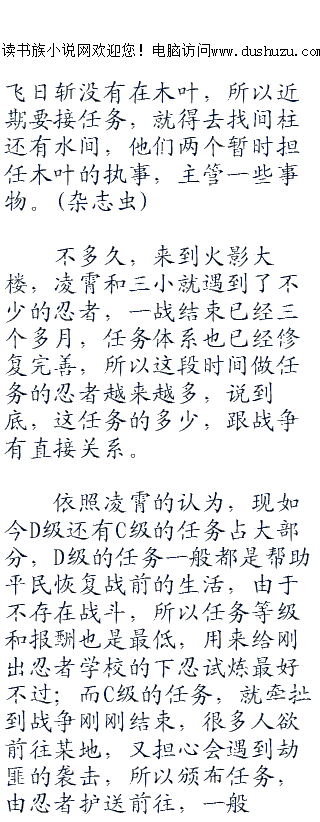 读书族小说网欢迎您！电脑访问www.dushuzu.com
飞日斩没有在木叶，所以近
期要接任务，就得去找间柱
还有水间，他们两个暂时担
任木叶的执事，主管一些事
物。(杂志虫)
不多久，来到火影大
楼，凌霄和三小就遇到了不
少的忍者，一战结束已经三
个多月，任务体系也已经修
复完善，所以这段时间做任
务的忍者越来越多，说到
底，这任务的多少，跟战争
有直接关系。
依照凌霄的认为，现如
今D级还有C级的任务占大部
分，D级的任务一般都是帮助
平民恢复战前的生活，由于
不存在战斗，所以任务等级
和报酬也是最低，用来给刚
出忍者学校的下忍试炼最好
不过；而C级的任务，就牵扯
到战争刚刚结束，很多人欲
前往某地，又担心会遇到劫
匪的袭击，所以颁布任务，
由忍者护送前往，一般